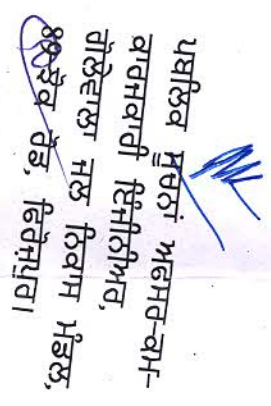 ਪਬਲਿਕ ਸੂਚਨਾਂ ਅਫਸਰ-ਕਮ-
ਕਾਰਜਕਾਰੀ ਇੰਜੀਨੀਅਰ,
ਗੋਲੇਵਾਲਾ ਜਲ ਨਿਕਾਸ ਮੰਡਲ,
ਕੈਨਾਲ ਰੋਡ, ਫਿਰੋਜ਼ਪੁਰ।